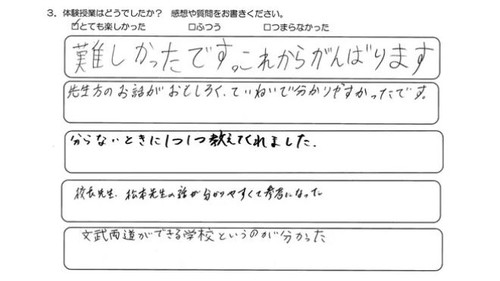 3．体験授業はどうでしたか？ 感想や質問をお書きください。
☑とても楽しかった □ふつう □つまらなかった
難しかったです。これからがんばります
先生方のお話がおもしろく、ていねいで分かりやすかったです。
分らないときに1つ1つ教えてくれました.
校長先生、松本先生の話が分かりやすくて参考になった
文武両道ができる学校というのが分かった